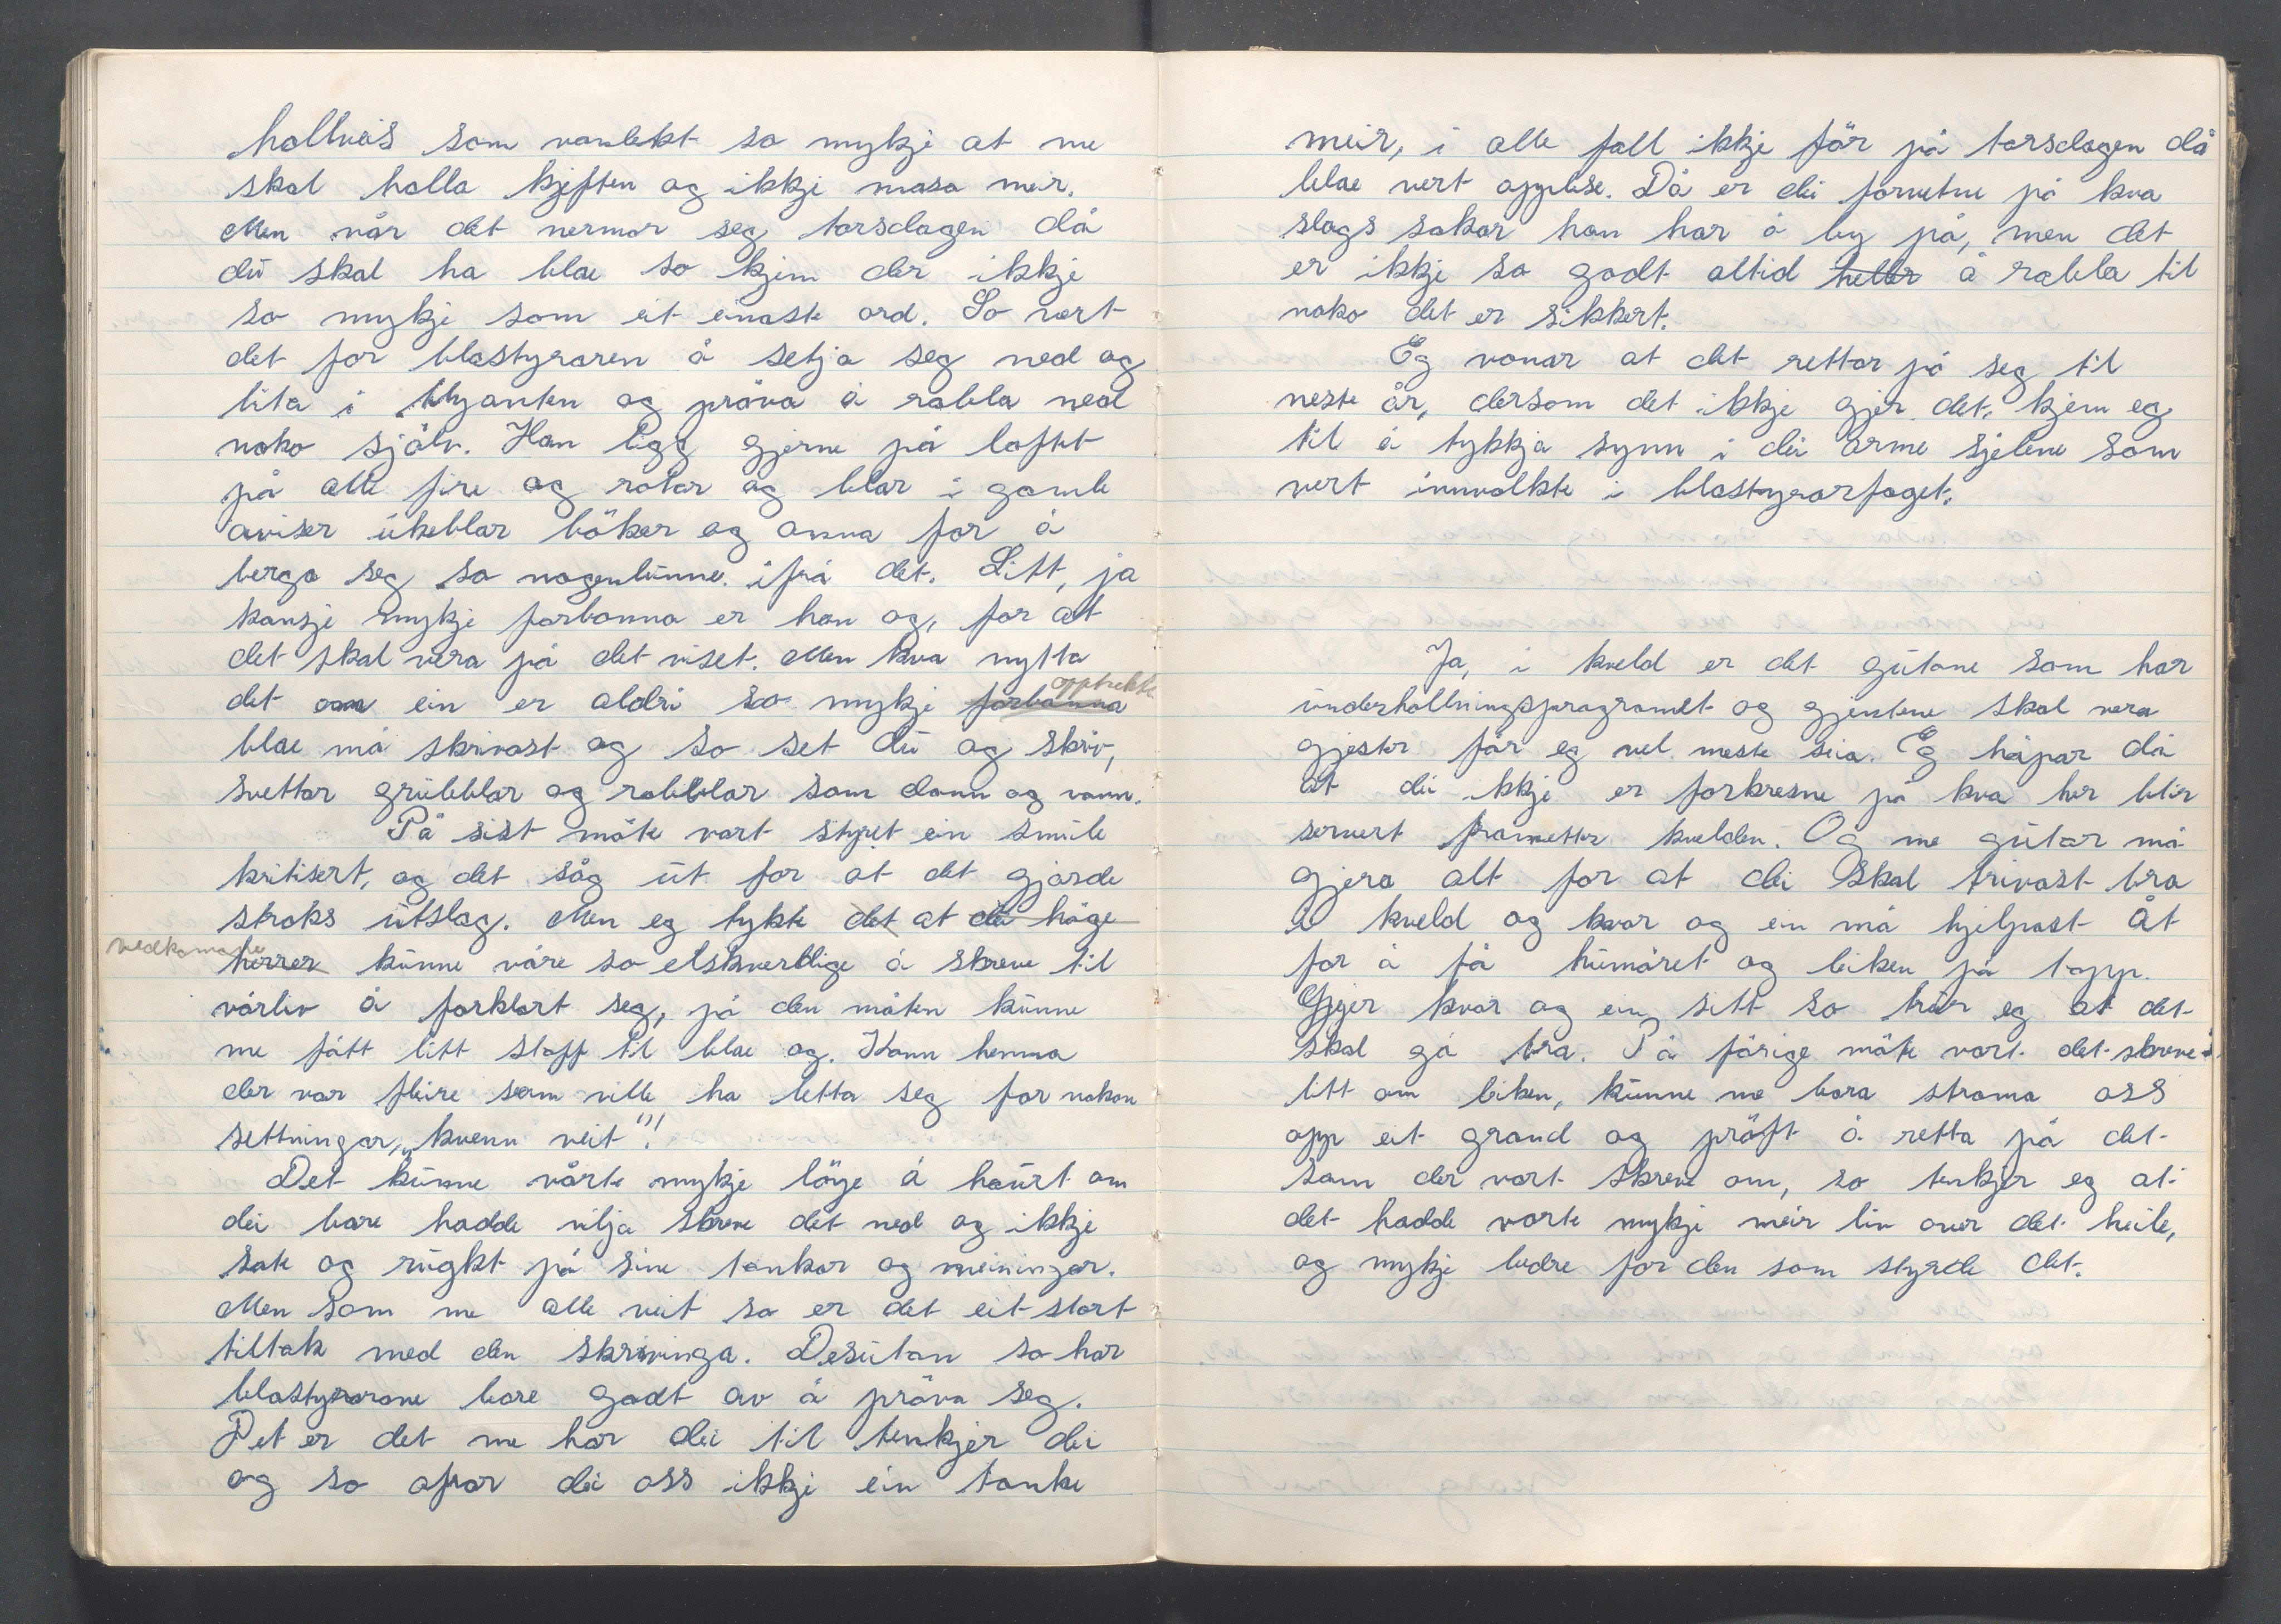 hallveis som vanlekt so mykje at me
skal halla kjeften og ikkje masa meir.
Men når det nermar seg torsdagen då
du skal ha blae so kjem der ikkje
so mykje som eit einaste ord. So vert
det for blastyraren å setja seg ned og
bita i blyanten og pröva å rabla ned
noko sjölv. Han ligg gjerne på loftet
på alle fire og rotar og blar i gamle
aviser ukeblar böker og anna for å
berga seg so nogenlunne ifrå det. Litt, ja
kansje mykje forbanna er han og, for at
det skal vera på det viset. Men kva nytta
det om ein er aldri so mykje forbanna opptrekte
blae må skrivast og so set du og skriv,
svettar grubblar og rabblar som dann og vann.
På sist möte vart styret ein smule
kritisert, og det såg ut for at det gjorde
straks utslag. Men eg tykte det at dei höge
vedkomane herrer kunne våre so elskverdlige å skreve til
vårliv å forklart seg, på den måten kunne
me fått litt stoff til blae og. Kann henna
der var fleire som ville ha letta seg for nokon
settningar, "kvenn veit"!
Det kunne vårte mykje löye å haurt om
dei bare hadde vilja skreve det ned og ikkje
sate og rugkt på sine tankar og meiningar.
Men som me alle veit so er det eit stort
tiltak med den skrivinga. Desutan so har
blastyrarane bare godt av å pröva seg.
Det er det me har dei til tenkjer dei
og so ofrar dei oss ikkje ein tanke
meir, i alle fall ikkje för på torsdagen då
blae vert opplese. Då er dei forvetne på kva
slags sakar han har å by på, men det
er ikkje so godt altid heller å rabla til
noko det er sikkert.
Eg vonar at det rettar på seg til
neste år, dersom det ikkje gjer det, kjem eg
til å tykkja synn i dei arme sjelene som
vert innvolkte i blastyrarfaget.
Ja, i kveld er det gutane som har
underhallningsprogramet og gjentene skal vera
gjester får eg vel meste seia. Eg håpar då
at dei ikkje er forkresne på kva her blir
servert frametter kvelden. Og me gutar må
gjera alt for at dei skal trivast bra
i kveld og kvar og ein må hjelpast åt
for å få humöret og leiken på topp.
Gjer kvar og ein sitt so trur eg at det
skal gå bra. På förige möte vart det skreve
litt om leiken, kunne me bara strama oss
opp eit grand og pröft å retta på det
som der vart skreve om, so tenkjer eg at
det hadde vorte mykje meir liv over det heile,
og mykje bedre for den som styrde det.